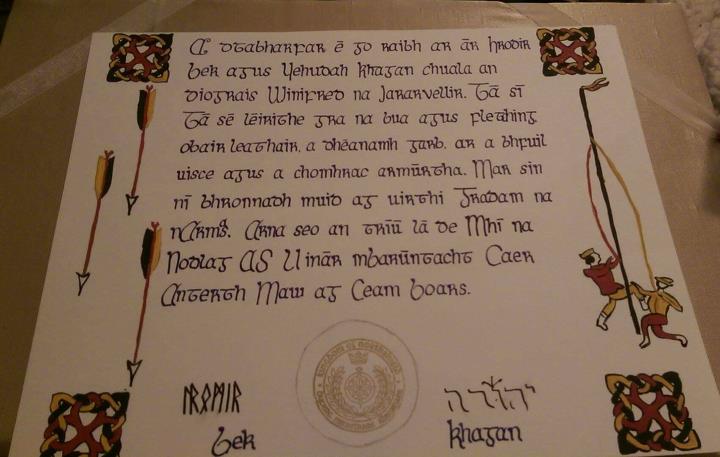 A dtabharfar é go raibh ar ár Hrodir
bek agus Yehudah Khagan chuala an
díograis Winifred na Jararvellir. Tá sí
Tá sé léirithe gra na bua agus fletching
obair leathair, a dhéanamh garb, ar a bhfuil
uisce agus a chomhrac armúrtha. Mar sin
ní bhronnadh muid ag uirthi Gradam na
nArms. Arna seo an tríú lá de Mhí na
Nodlag AS LI inár mbarúntacht Caer
Anterth Maw ag Ceam boars.
ᚺᚱᛟᛗᛁᚱ
יהודה
bek
khagan